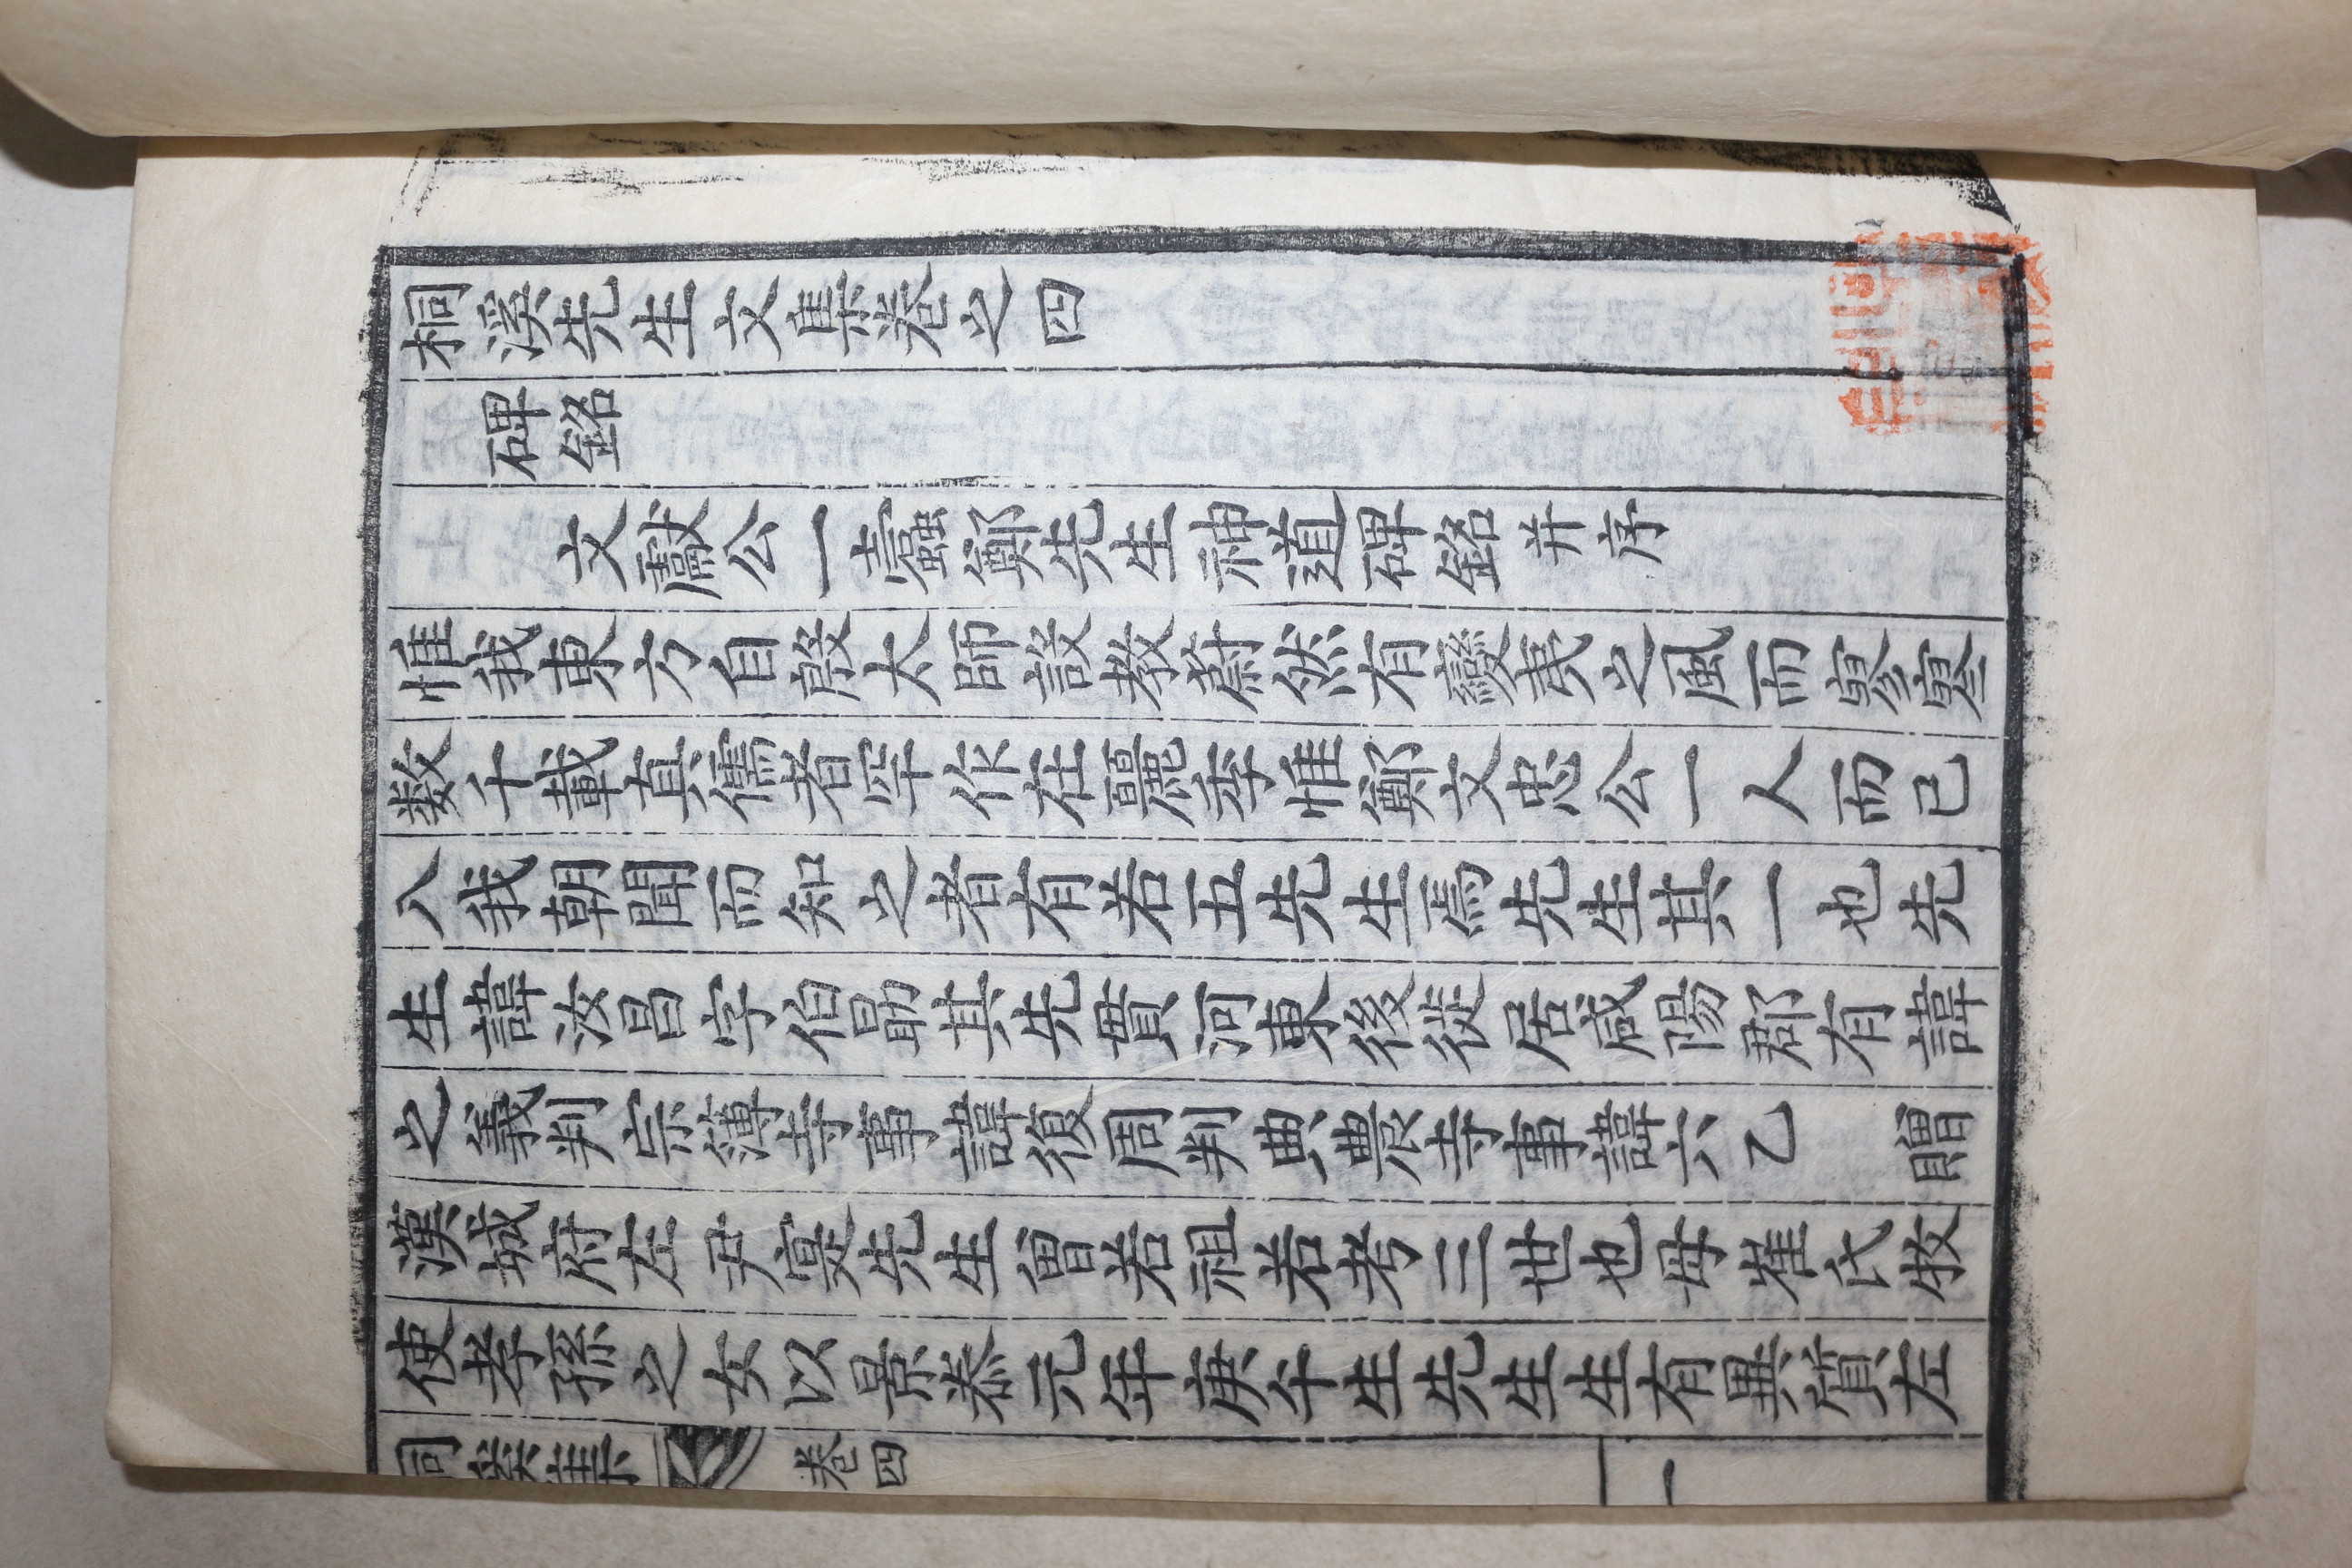 桐溪先生文集卷之四
碑銘
文獻公一蠹鄭先生神道碑銘并序
惟我東方自殷太師設敎蔚然有變夷之風而寥寥
数千載眞儒者罕作在麗季惟鄭文忠公一人而已
入我朝聞而知之者有若五先生焉先生其一也先
生諱汝昌字伯勗其先貫河東後徙居咸陽郡有諱
之義判宗簿寺事諱復周判典農寺事諱六乙 贈
漢城府左尹寔先生曾若祖若考三世也母崔氏牧
使孝孫之女以景泰元年庚午生先生生有異質左
桐溪集 卷四 一